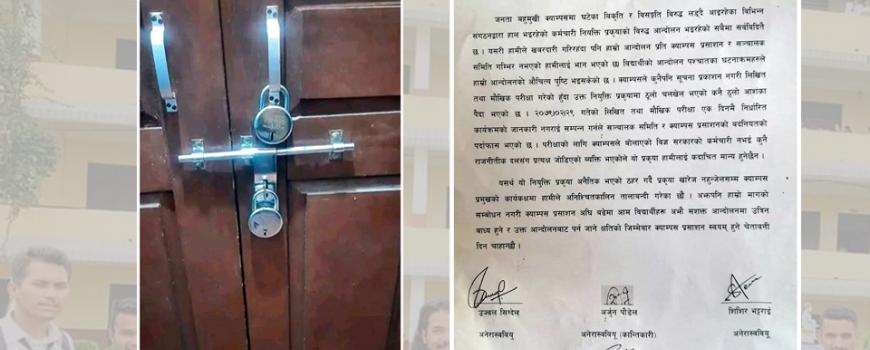 जनता बहुमुखी क्याम्पसमा घटेका विकृति र विसङ्गति विरुद्ध लड्दै आइरहेका विभिन्न
संगठनद्वारा हाल भइरहेको कर्मचारी नियुक्ति प्रकृयाको विरुद्ध आन्दोलन भइरहेको सबैमा सर्वविदितै
छ । यसरी हामीले खबरदारी गरिरहंदा पनि हाम्रो आन्दोलन प्रति क्याम्पस प्रशासन र सञ्चालक
समिति गम्भिर नभएको हामीलाई भान भएको छ। विद्यार्थीको आन्दोलन पश्चातका घटनाक्रमहरुले
हाम्रो आन्दोलनको औचित्य पुष्टि भइसकेको छ । क्याम्पसले कुनैपनि सूचना प्रकाशन नगरी लिखित
तथा मौखिक परीक्षा गरेको हुँदा उक्त नियुक्ति प्रकृयामा ठुलो चलखेल भएको कनै ठुलो आशंका
पैदा भएको छ । २०७९/०२/२९ गतेको लिखित तथा मौखिक परीक्षा एक दिनमै निर्धारित
कार्यक्रमको जानकारी नगराई सम्पन्न गर्नले सञ्चालक समिति र क्याम्पस प्रशासनको बदनियतको
पर्दाफास भएको छ । परीक्षाको लागि क्याम्पसले बोलाएको विज्ञ सरकारको कर्मचारी नभई कुनै
राजनीतीक दलसंग प्रत्यक्ष जोडिएको व्यक्ति भएकोले यो प्रकृया हामीलाई कदाचित मान्य हुनेछैन ।
यसर्थ यो नियुक्ति प्रकृया अनैतिक भएको ठहर गर्दै प्रकृया खारेज नहुन्जेलसम्म क्याम्पस
प्रमुखको कार्यकक्षमा हामीले अनिश्चितकालिन तालाबन्दी गरेका छौ । अझपनि हाम्रो मागको
सम्बोधन नगरी क्याम्पस प्रशासन अघि बढेमा आम विद्यार्थीहरू अझै सशक्त आन्दोलनमा उत्रिन
बाध्य हुने र उक्त आन्दोलनबाट पर्न जाने क्षतिको जिम्मेवार क्याम्पस प्रशासन स्वयम् हुने चेतावनी
दिन चाहान्छौ ।
उज्वल सिग्देल अर्जुन पौडेल शिशिर भट्टराई
अनेरास्ववियु अनेरास्ववियू (क्रान्तिकारी) अनेरास्ववियू